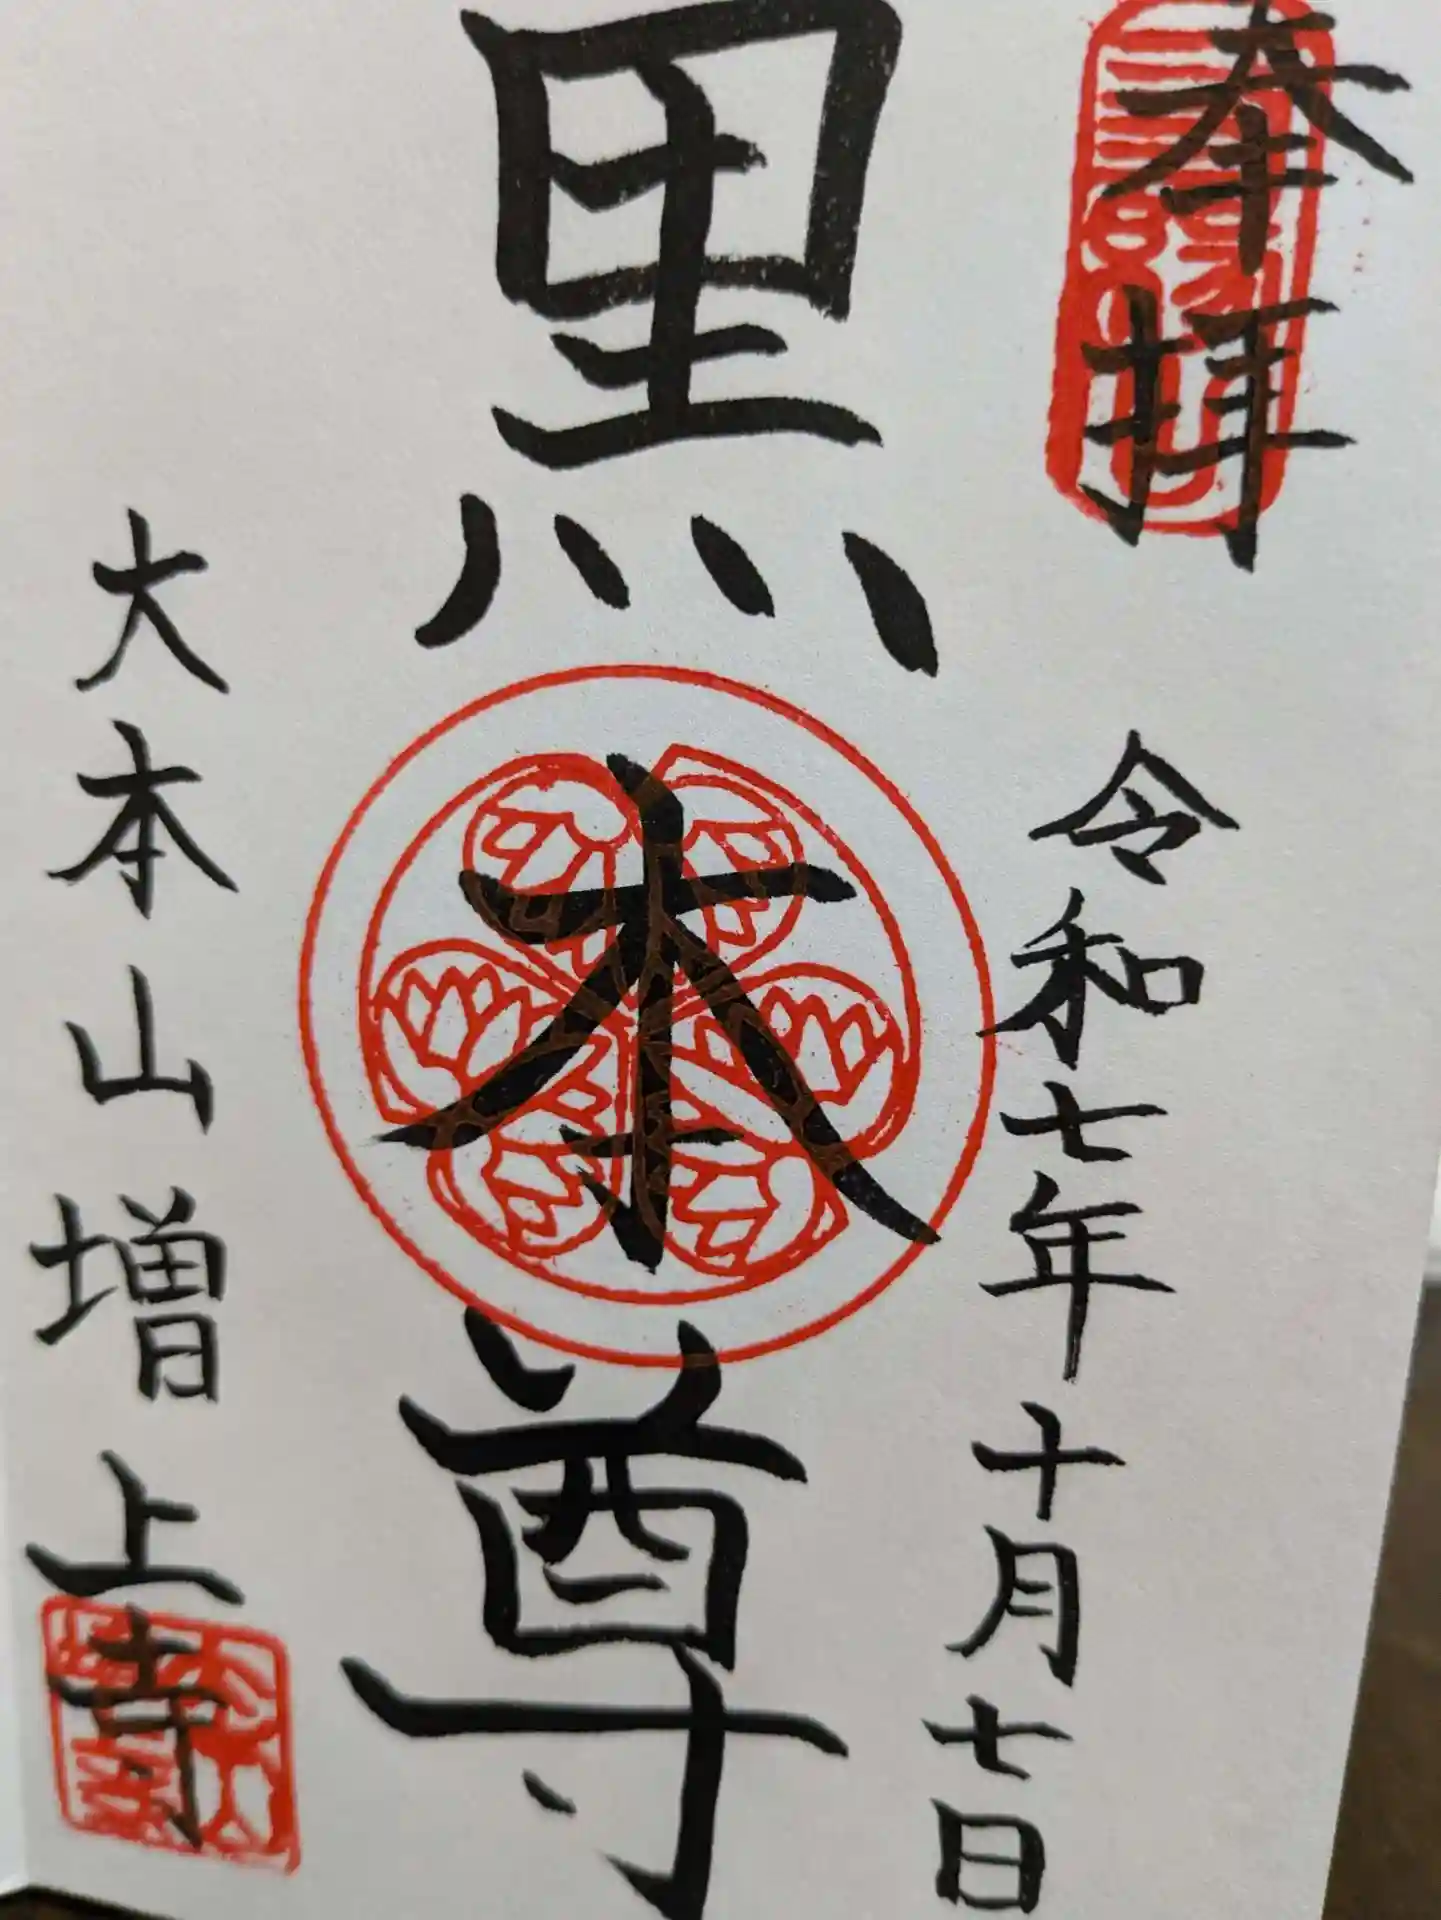 奉拝
令和七年十月七日
黒本尊
大本山増上寺